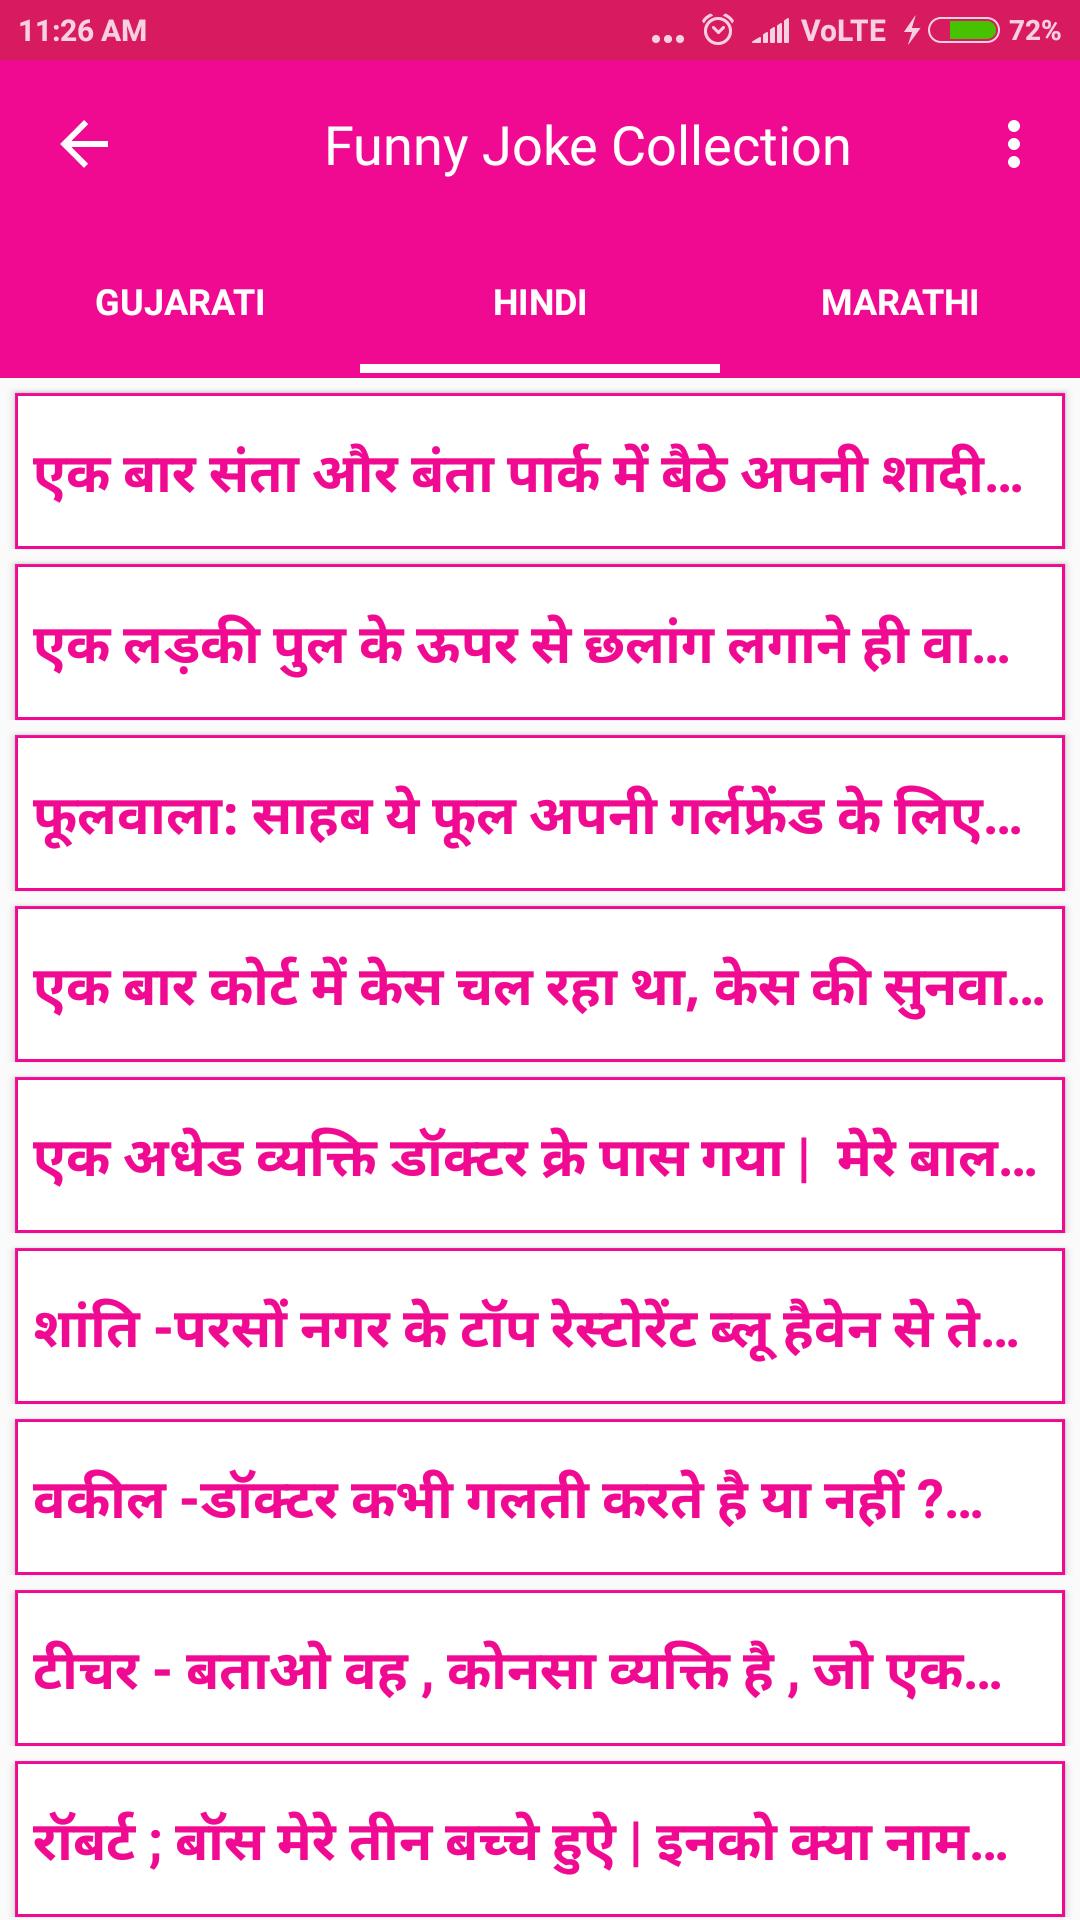 11:26 AM ... VoLTE 72%
Funny Joke Collection
GUJARATI HINDI MARATHI
एक बार संता और बंता पार्क में बैठे अपनी शादी...
एक लड़की पुल के ऊपर से छलांग लगाने ही वा...
फूलवाला: साहब ये फूल अपनी गर्लफ्रेंड के लिए...
एक बार कोर्ट में केस चल रहा था, केस की सुनवा...
एक अधेड व्यक्ति डॉक्टर क्रे पास गया | मेरे बाल...
शांति -परसों नगर के टॉप रेस्टोरेंट ब्लू हैवेन से ते...
वकील -डॉक्टर कभी गलती करते है या नहीं ?...
टीचर - बताओ वह , कोनसा व्यक्ति है , जो एक...
रॉबर्ट ; बॉस मेरे तीन बच्चे हुऐ | इनको क्या नाम...